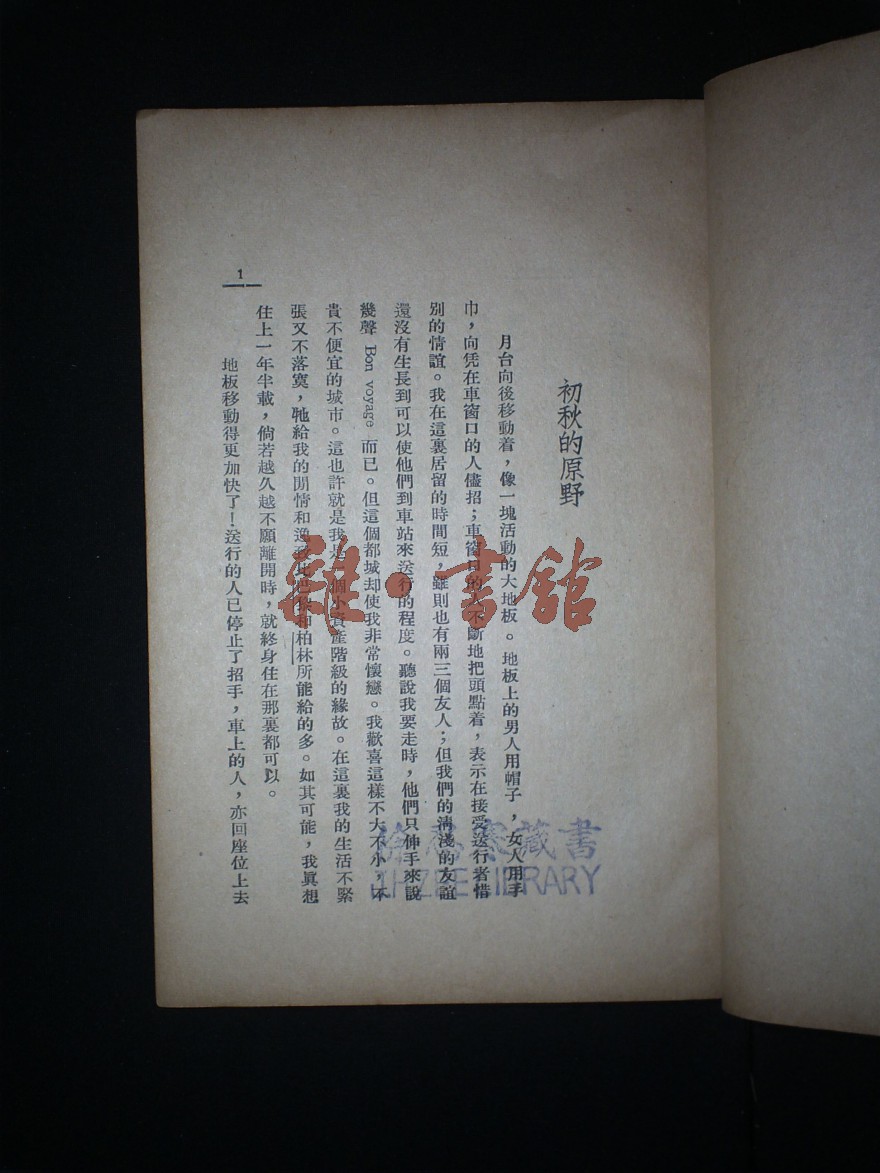 初秋的原野
月台向後移動着，像一塊活動的大地板。地板上的男人用帽子，女人用手
巾，向凭在車窗口的人儘招；車窗口的人不斷地把頭點着，表示在接受送行者惜
別的情誼。我在這裏居留的時間短，雖則也有兩三個友人；但我們的淸淺的友誼
還沒有生長到可以使他們到車站來送行的程度。聽說我要走時，他們只伸手來說
幾聲 Bon voyage 而已。但這個都城却使我非常懷戀。我歡喜這樣不大不小，不
貴不便宜的城市。這也許就是我是一個小資產階級的緣故。在這裏我的生活不緊
張又不落寞，牠給我的閒情和逸致比巴黎和柏林所能給的多。如其可能，我眞想
住上一年半載，倘若越久越不願離開時，就終身住在那裏都可以。
地板移動得更加快了！送行的人已停止了招手，車上的人，亦回座位上去
1
雜·書館
藏書
LIBRARY